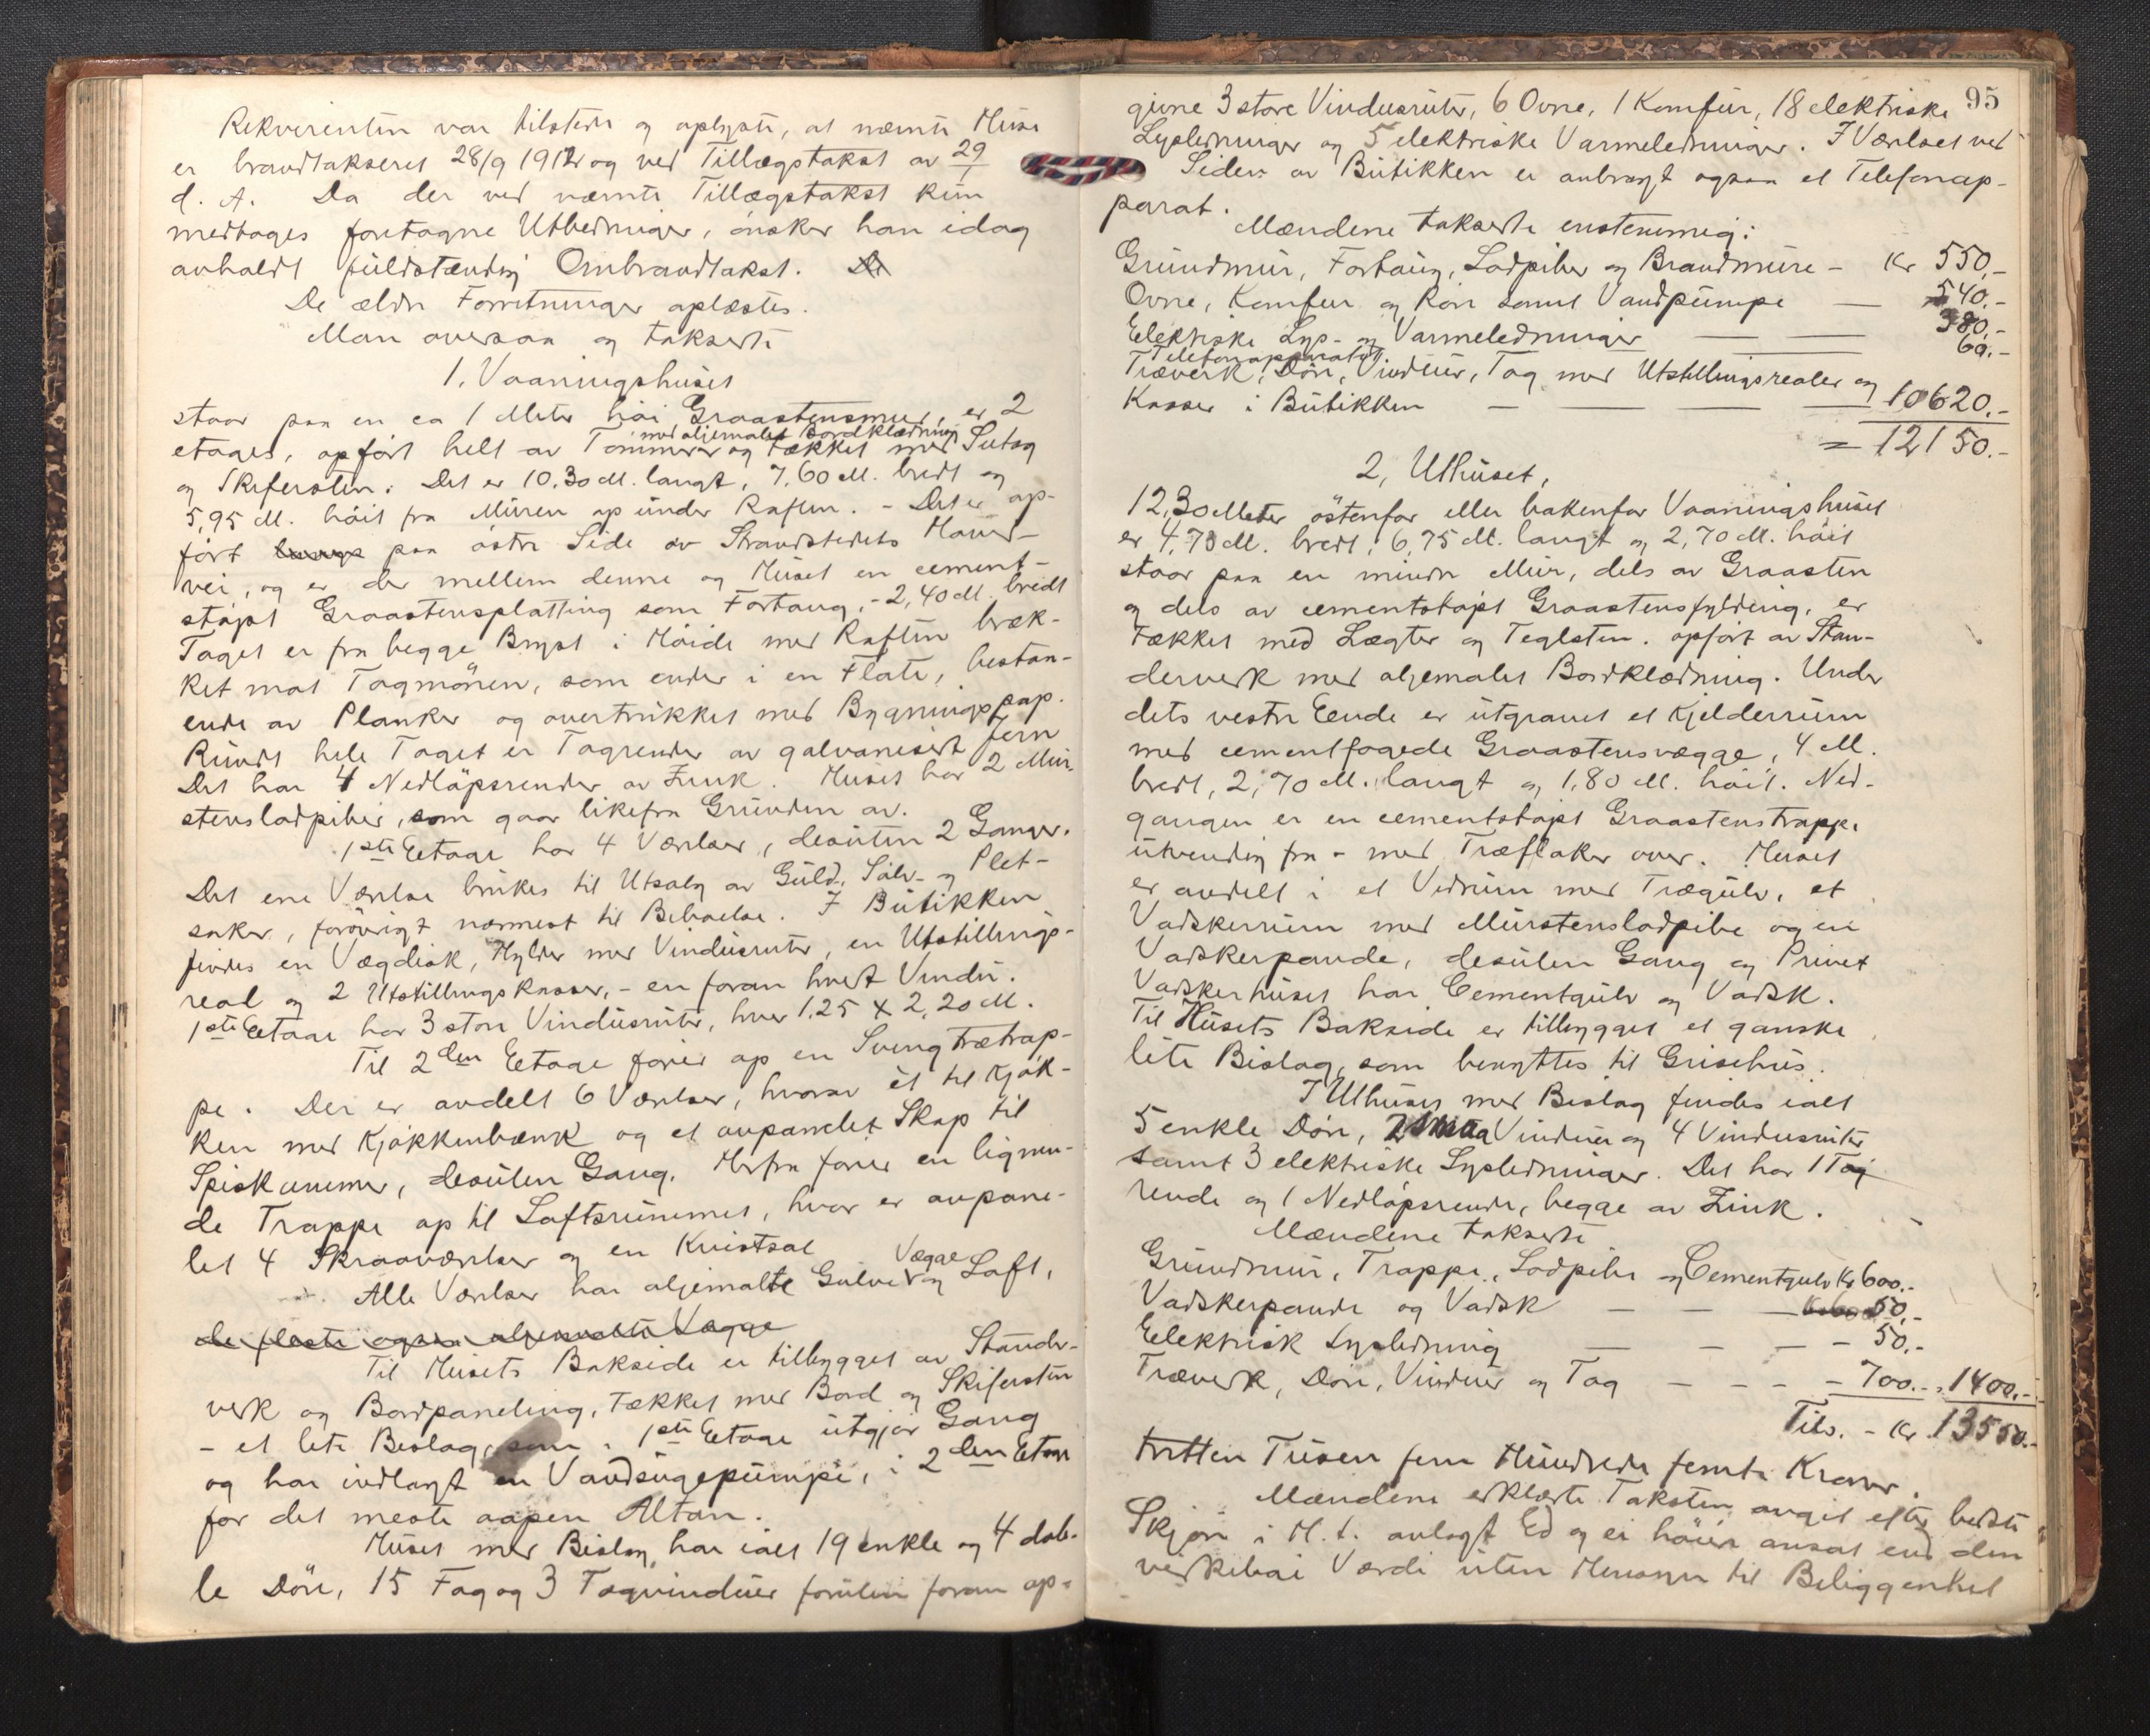 Rekvirenten var tilstede og oplyste, at nævnte Huse
er brandtakseret 28/9 1912 og ved Tillægstakst av 29/7
d. A. Da der ved nævnte Tillægstakst kun
medtoges foretagne Utbedringer, ønsker han idag
avholdt fuldstændig Ombrandtakst. De
De ældre Forretninger oplæstes.
Man overså og takserte
1. Vaaningshuset
staar paa en ca 1 Meter høi Graastensmur, er 2
etages, opført helt av Tømmer med oljemalet Bordklædning og tækket med Sutag
og Skifersten. Det er 10,30 M. langt, 7,60 M. bredt og
5,95 M. høit fra Muren op under Raften. - Det er op-
ført langs paa østre Side av Strandstedets Hoved-
vei, og er der mellem denne og Huset en cement-
støpt Graastensplatting som Fortaug, - 2,40 M. bredt
Taget er fra begge Bryst i Høide med Raften bræk-
ket mot Tagmønen, som ender i en Flate, bestaa-
ende av Planker og overtrukket med Bygningspap.
Rundt hele Taget er Tagrender av galvanisert Jern
Det har 4 Nedløpsrender av Zink. Huset har 2 Mur-
stensladpiber, som gaar likefra Grunden av.
1ste Eetage har 4 Værelser, desuten 2 Ganger.
Det ene Værelse brukes til Utsalg av Guld, Sølv- og Plet-
saker, forøvrigt nærmest til Beboelse. I Butikken
findes en Vægdisk, Hylder med Vindusruter, en Utstillings-
real og 2 Utstillingskasser, - en foran hvert Vindu.
1ste Eetage har 3 store Vindusruter, hver 1,25 x 2,20 M.
Til 2den Eetage fører op en Svingtrætrap-
pe. Der er avdelt 6 Værelser, hvorav et til Kjøk-
ken med Kjøkkenbænk og et avpanelet Skap til
Spiskammer, desuten Gang. Herfra fører en lignen-
de Trappe op til Loftsrummet, hvor er avpane-
let 4 Skraaværelser og en Kvistsal
Alle Værelser har oljemalte Gulver Vægge og Loft,
de fleste ogsaa oljemalte Vægge
Til Husets Bakside er tilbygget av Stander-
verk og Bordpaneling, tækket med Bord og Skifersten
- et lite Bislag, som i 1ste Eetage utgjør Gang
og har indlagt en Vandsugepumpe, i 2den Etage
for det meste aapen Altan.
Huset med Bislag har ialt 19 enkle og 4 dob-
le Døre, 15 Fag og 3 Tagvinduer foruten foran op-
95
givne 3 store Vindusruter, 6 Ovne, 1 Komfur, 18 elektriske
Lysledninger og 5 elektriske Varmeledninger. I Værelset ved
Siden av Butikken er anbragt ogsaa et Telefonap-
parat.
Mændene takserte enstemmig:
Grundmur, Fortaug, Ladpiber og Brandmure - Kr 550,-
Ovne, Komfur og Rør samt Vandpumpe — 540.-
Elektriske Lys- og Varmeledninger — — 380.-
Telefonapparatet. — 60.-
Træverk, Døre, Vinduer, Tag med Utstillingsrealer og
Kasser i Butikken — — — 10620.-
= 12150.-
2, Uthuset,
12,30 Meter østenfor eller bakenfor Vaaningshuset
er 4,73 M. bredt, 6,75 M. langt og 2,70 M. høit
staar paa en mindre Mur, dels av Graasten
og dels av cementstøpt Graastensfylding, er
tækket med Lægter og Teglsten. opført av Stan-
derverk med oljemalet Bordklædning. Under
dets vestre Eende er utgravet et Kjelderrum
med cementfogede Graastensvægge, 4 M.
bredt, 2,70 M. langt og 1,80 M. høit. Ned-
gangen er en cementstøpt Graastenstrappe
utvendig fra - med Træflaker over. Huset
er avdelt i et Vedrum med Trægulv, et
Vadskerrum med Murstensladpibe og en
Vadskerpande, desuten Gang og Privet
Vadskerhuset har Cementgulv og Vadsk.
Til Husets Bakside er tilbygget et ganske
lite Bislag, som benyttes til Grisehus.
I Uthuset med Bislag findes ialt
5 enkle Døre, 2 smaa Vinduer og 4 Vindusruter
samt 3 elektriske Lysledninger. Det har 1 Tag
rende og 1 Nedløpsrende, begge av Zink.
Mændene takserte
Grundmur, Trappe, Ladpibe og Cementgulv Kr 600.-
Vadskerpande og Vadsk — — — 50.-
Eelektrisk Lysledning — — — - 50.-
Træverk, Døre, Vinduer og Tag — — - - 700.- 1400.-
Tils. - Kr 13550.-
tretten Tusen fem Hundrede femti Kroner.
Mændene erklærte Taksten avgit efter bedste
Skjøn i H. t. avlagt Ed og ei høiere ansat end den
virkelige Værdi uten Hensyn til Beliggenhet